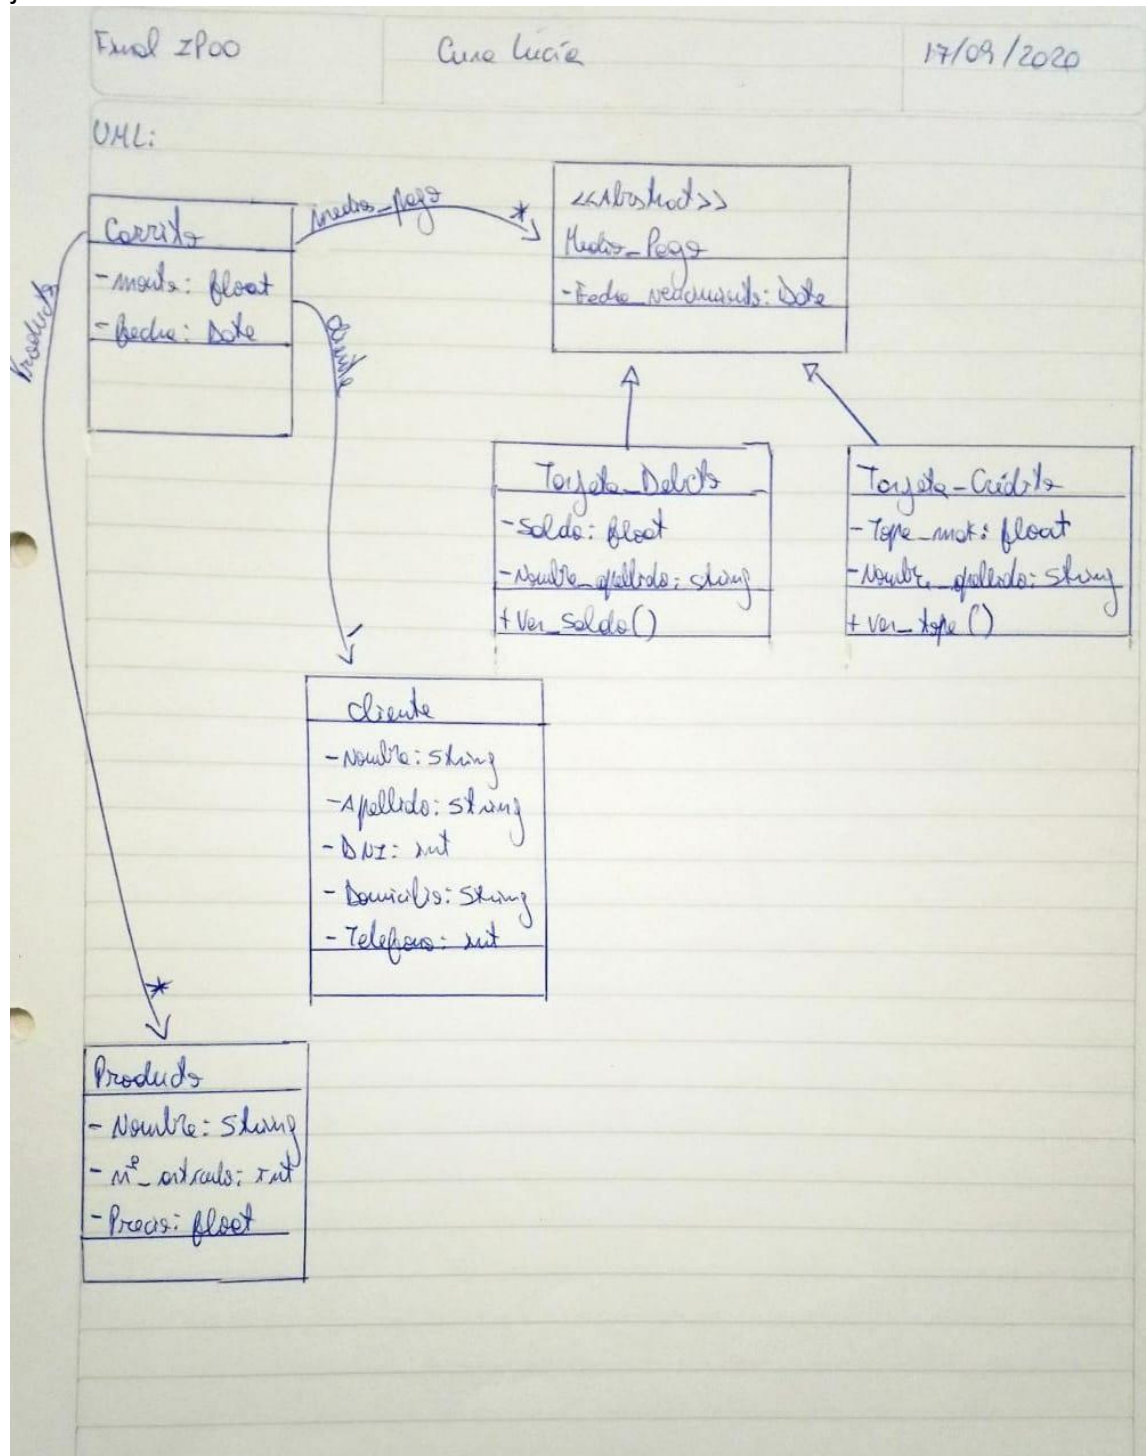 Final IPOO
Cura Lucía
17/09/2020
UML:
Carrito
- monto: float
- fecha: Date
medio_pago
*
<<Abstract>>
Medio_Pago
- Fecha_vencimiento: Date
Producto
cliente
Tarjeta_Debito
- Saldo: float
- Nombre_apellido: string
+ Ver_Saldo()
Tarjeta_Crédito
- Tope_max: float
- Nombre_apellido: string
+ Ver_tope()
cliente
- Nombre: string
- Apellido: string
- DNI: int
- Domicilio: String
- Telefono: int
*
Producto
- Nombre: String
- nº_articulo: int
- Precio: float